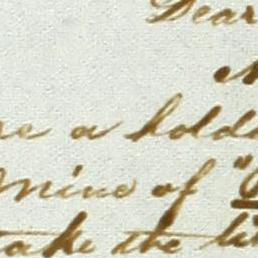 Dear
a hold
mine of "
take the li